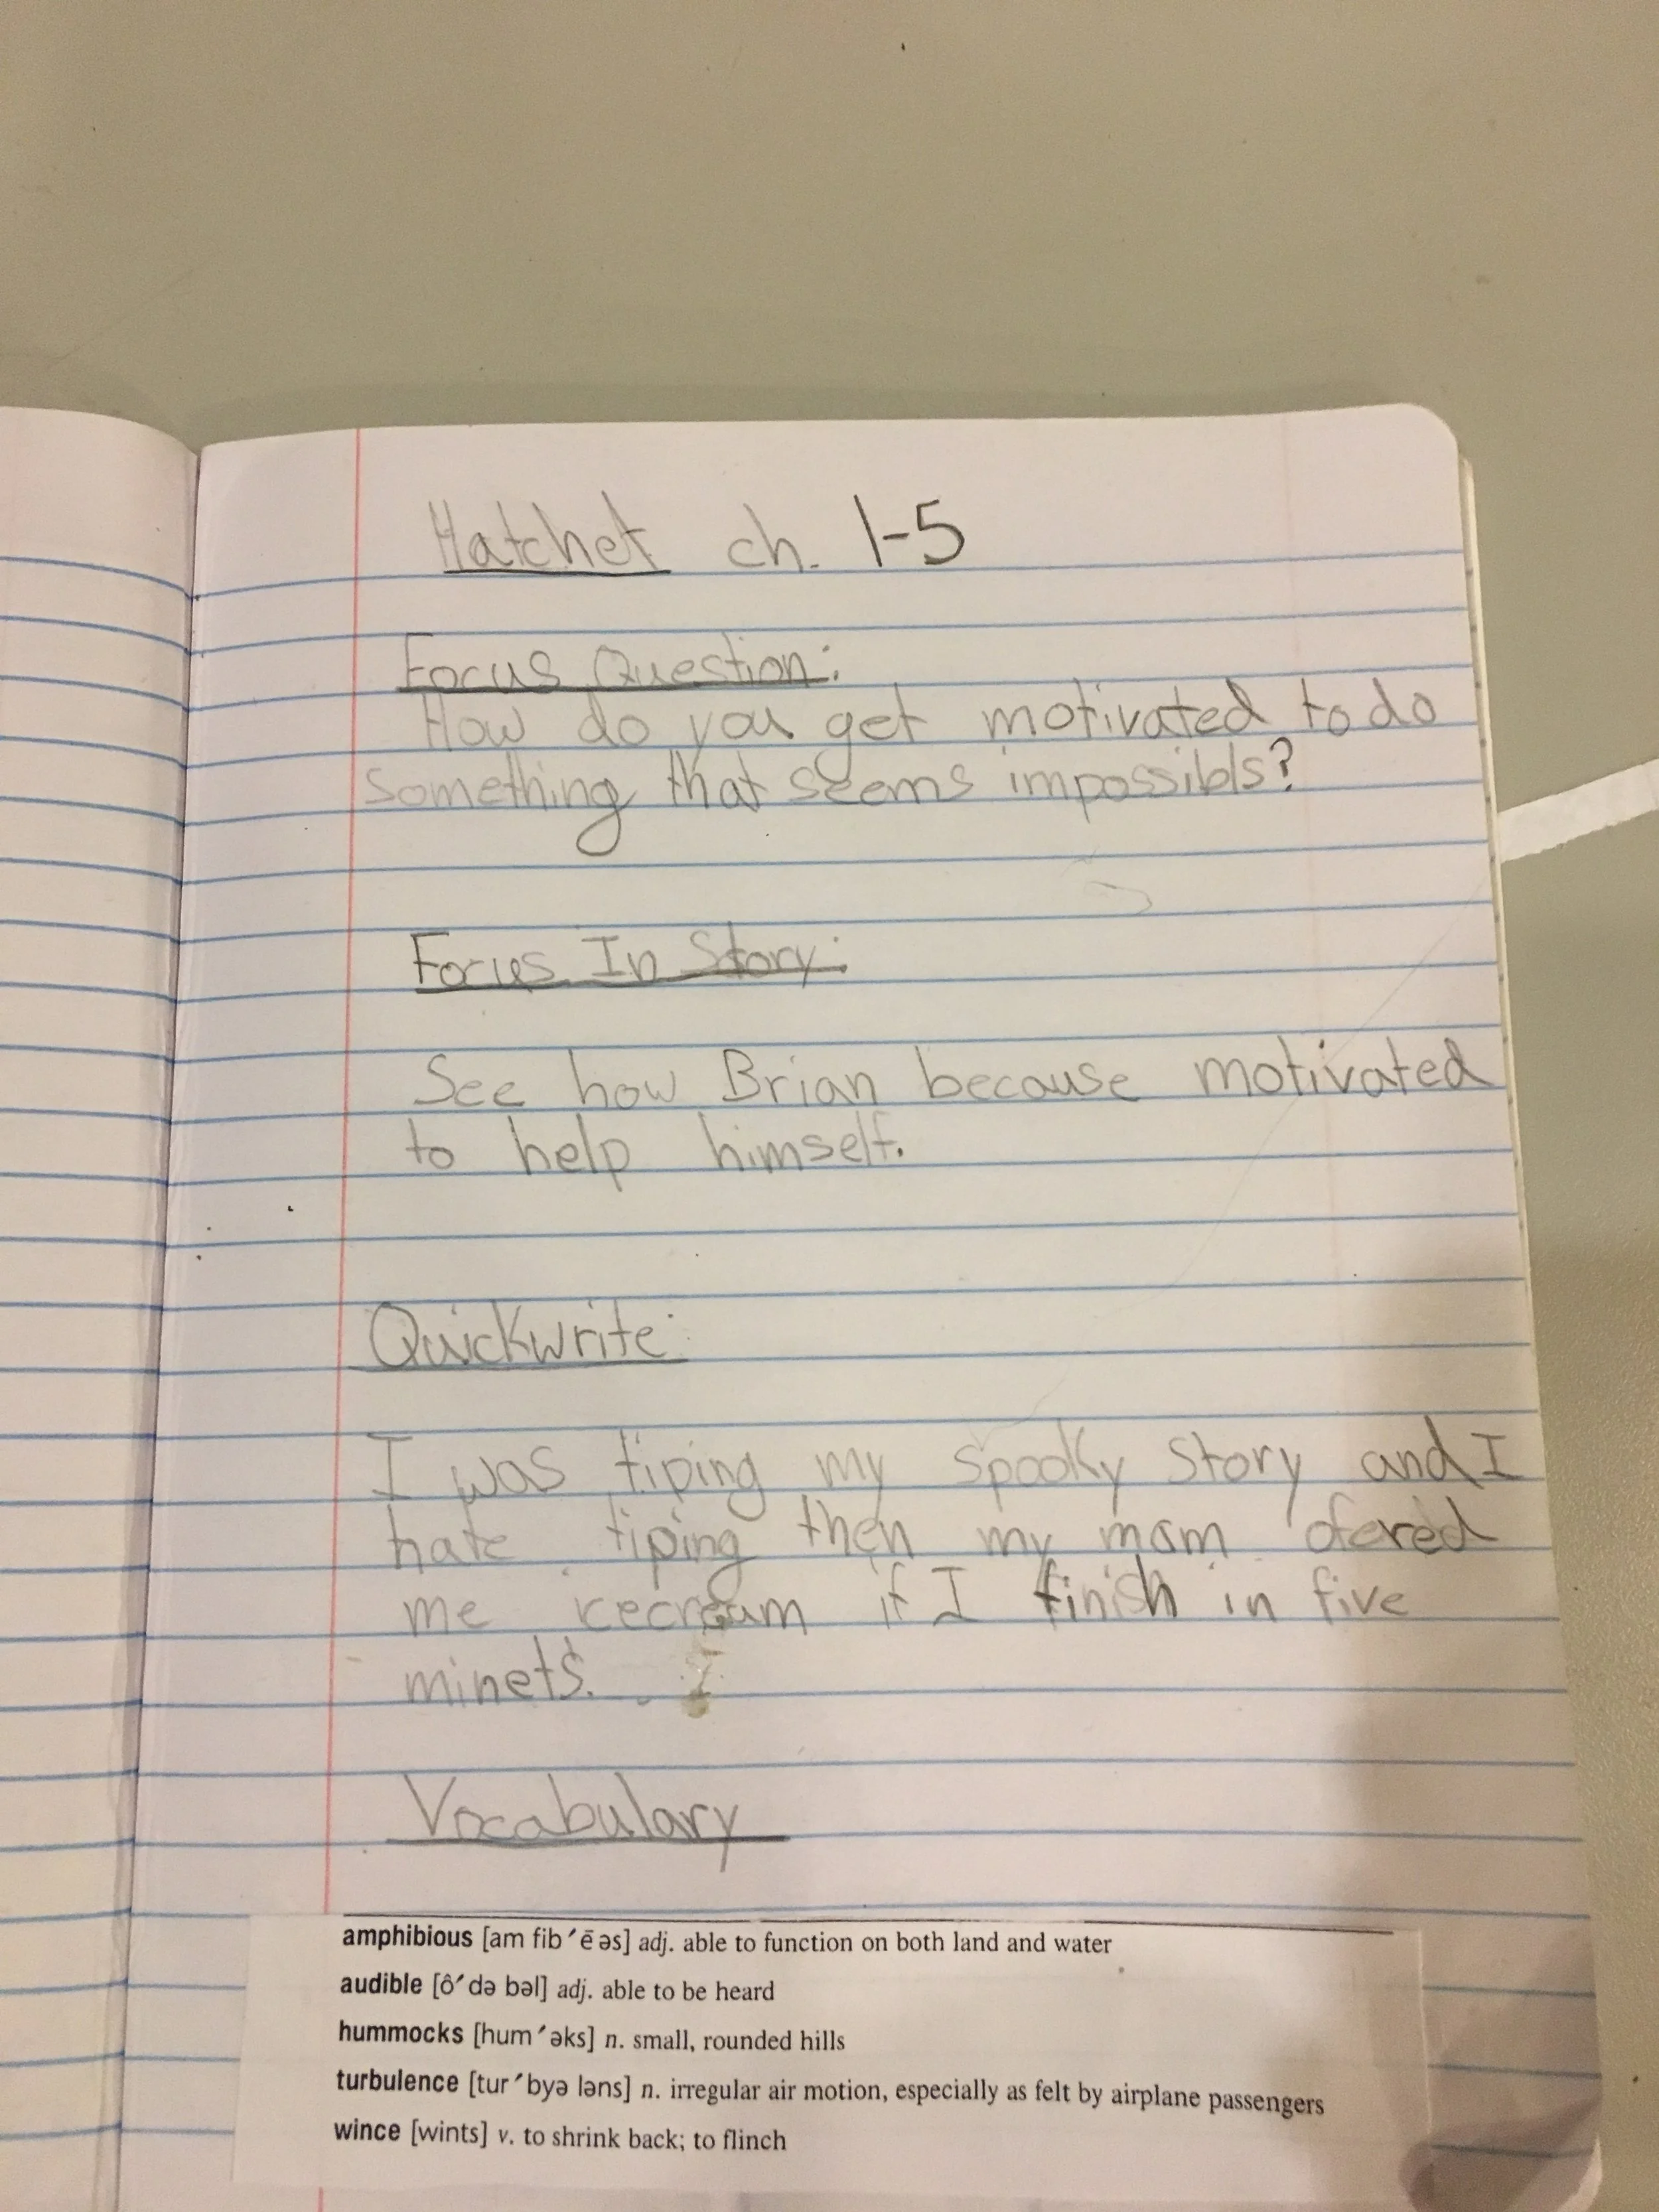 Hatchet ch. 1-5
Focus Question:
How do you get motivated to do
something that seems impossibls?
Focus In Story:
See how Brian because motivated
to help himself.
Quickwrite:
I was tiping my spooky story and I
hate tiping then my mom ofered
me icecream if I finish in five
minets.
Vocabulary
amphibious [am fib′ē əs] adj. able to function on both land and water
audible [ô′də bəl] adj. able to be heard
hummocks [hum′əks] n. small, rounded hills
turbulence [tur′byə ləns] n. irregular air motion, especially as felt by airplane passengers
wince [wints] v. to shrink back; to flinch